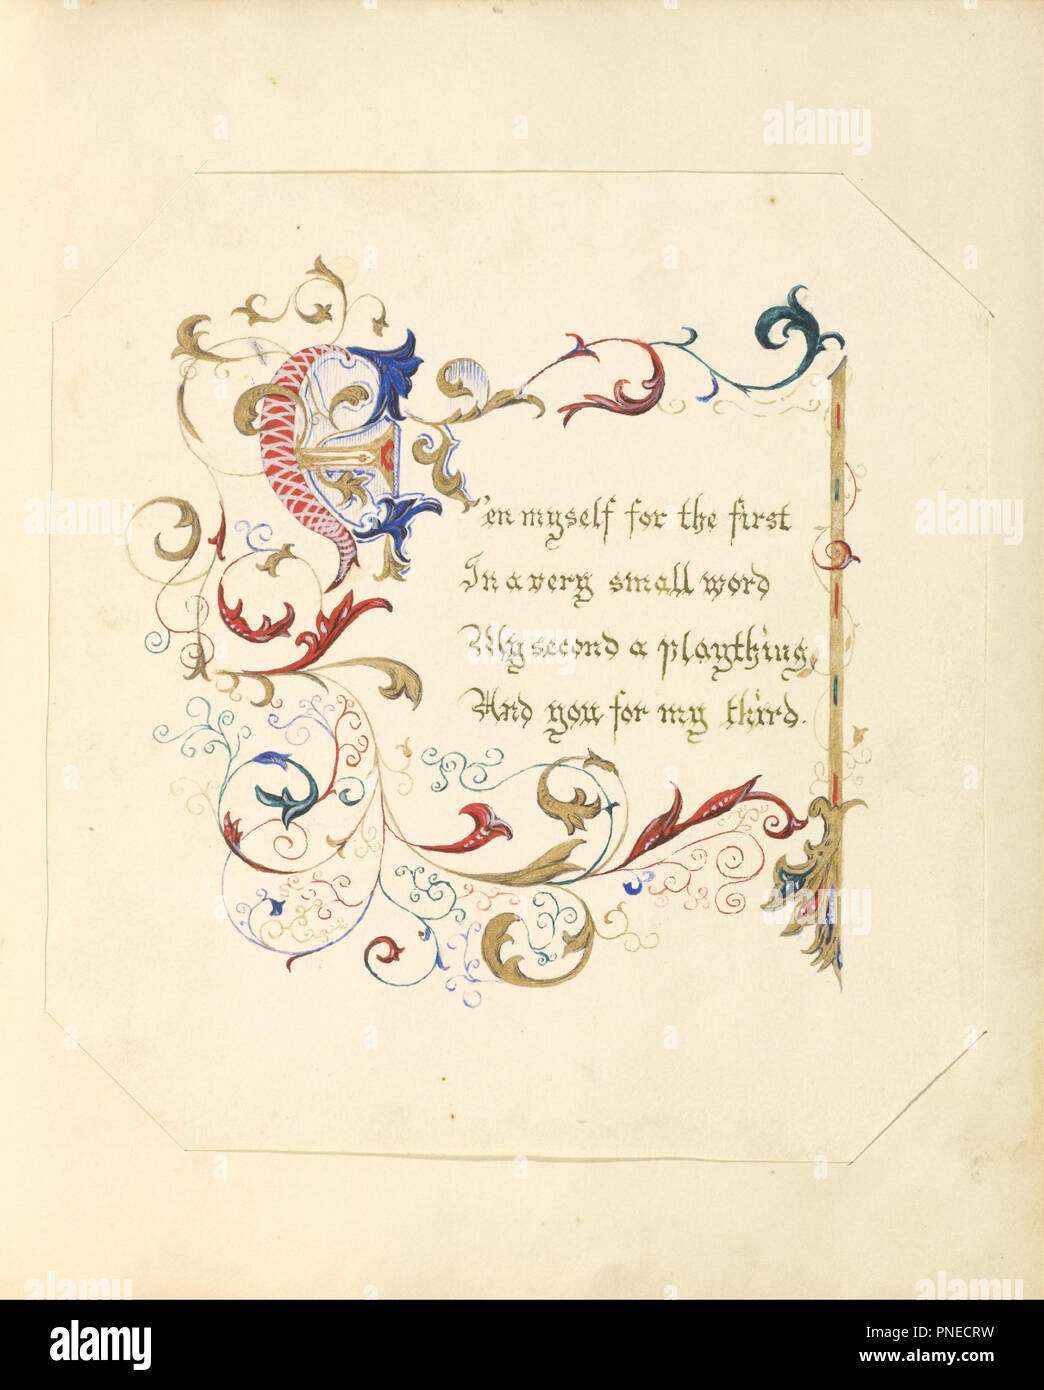 E'en myself for the first
In a very small word
My second a plaything
And you for my third.
alamy
alamy
alamy
alamy
alamy
alamy
a
a
a
a
alamy
Image ID: PNECRW
www.alamy.com